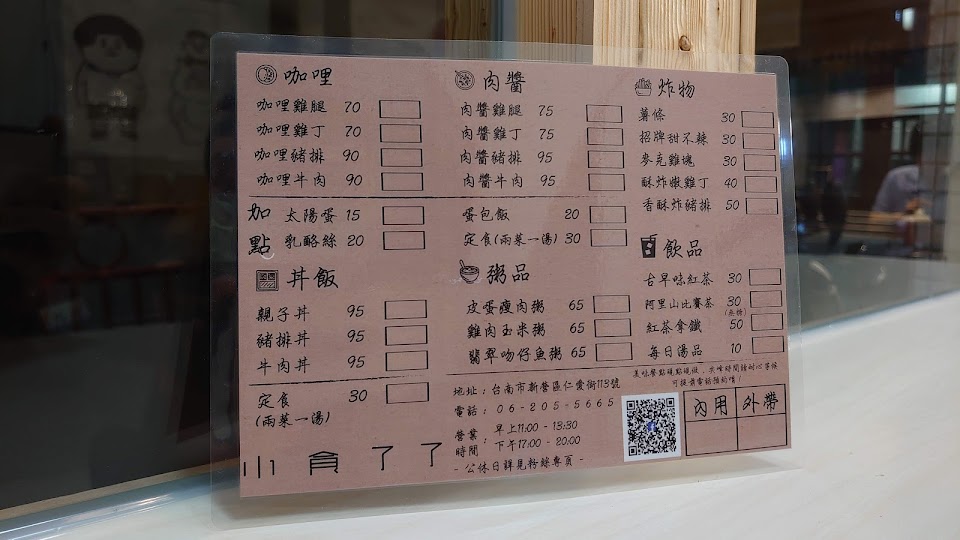 咖哩
咖哩雞腿 70
咖哩雞丁 70
咖哩豬排 90
咖哩牛肉 90
加點
太陽蛋 15
乳酪絲 20
丼飯
親子丼 95
豬排丼 95
牛肉丼 95
定食 30
(兩菜一湯)
小食了了
肉醬
肉醬雞腿 75
肉醬雞丁 75
肉醬豬排 95
肉醬牛肉 95
蛋包飯 20
定食(兩菜一湯) 30
粥品
皮蛋瘦肉粥 65
雞肉玉米粥 65
翡翠吻仔魚粥 65
地址：台南市新營區仁愛街113號
電話：06-205-5665
營業時間：
早上11:00 - 13:30
下午17:00 - 20:00
- 公休日詳見粉絲專頁 -
炸物
薯條 30
招牌甜不辣 30
麥克雞塊 30
酥炸嫩雞丁 40
香酥炸豬排 50
飲品
古早味紅茶 30
阿里山比賽茶 30
(無糖)
紅茶拿鐵 50
每日湯品 10
美味餐點現點現做，尖峰時間請耐心等候
可提前電話預約唷！
內用 外帶